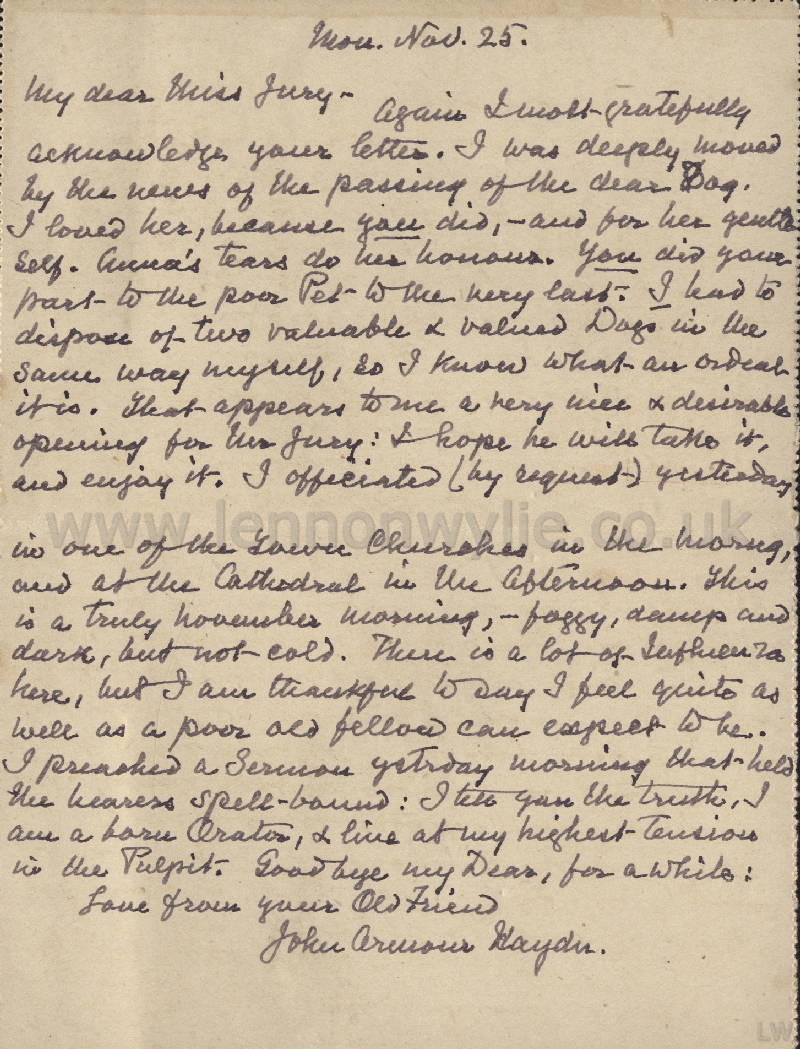 Mon. Nov. 25.
My dear Miss Jury - Again I most gratefully
acknowledge your letter. I was deeply moved
by the news of the passing of the dear Dog.
I loved her, because you did, - and for her gentle
self. Anna's tears do her honour. You did your
part to the poor Pet to the very last. I had to
dispose of two valuable & valued Dogs in the
same way myself, so I know what an ordeal
it is. That appears to me a very nice & desirable
opening for Mr Jury: I hope he will take it,
and enjoy it. I officiated (by request) yesterday
www.lennonwylie.co.uk
in one of the Town Churches in the morng,
and at the Cathedral in the Afternoon. This
is a truly November morning, - foggy, damp and
dark, but not cold. There is a lot of Influenza
here, but I am thankful to say I feel quite as
well as a poor old fellow can expect to be.
I preached a Sermon ystrday morning that held
the hearers spell-bound: I tell you the truth, I
am a born Orator, & live at my highest tension
in the Pulpit. Goodbye my Dear, for a while:
Love from your Old Friend
John Armour Haydn.
LW